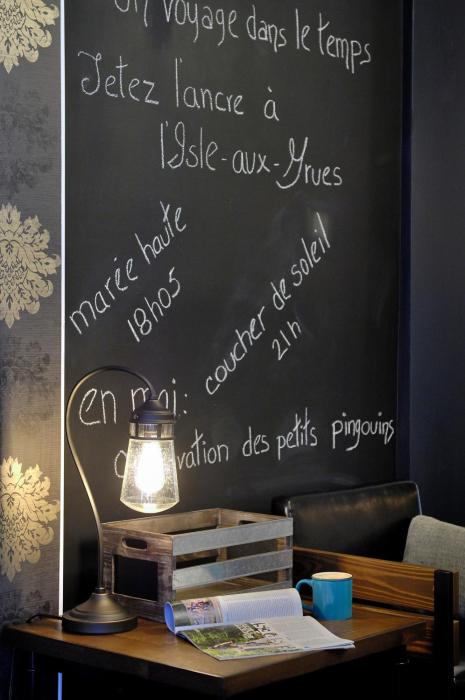 Un voyage dans le temps
Jetez l'ancre à
l'Isle-aux-Grues
marée haute
18h05
coucher de soleil
21h
en mai:
des petits pingouins